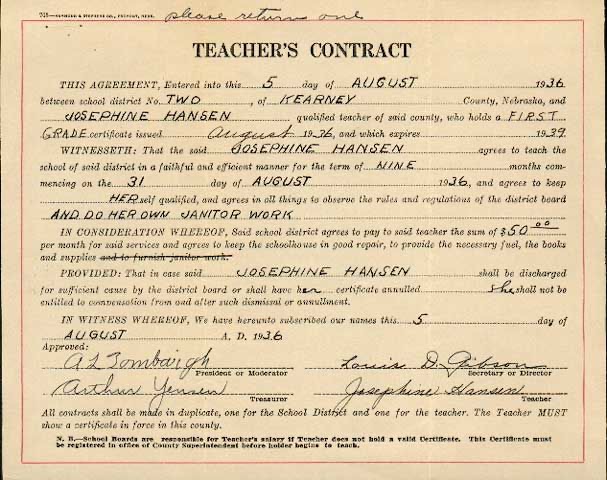 please return one
TEACHER'S CONTRACT
THIS AGREEMENT, Entered into this 5 day of AUGUST 1936
between school district No. TWO, of KEARNEY County, Nebraska, and
JOSEPHINE HANSEN qualified teacher of said county, who holds a FIRST
GRADE certificate issued August 1936, and which expires 1939
WITNESSETH: That the said JOSEPHINE HANSEN agrees to teach the
school of said district in a faithful and efficient manner for the term of NINE months com-
mencing on the 31 day of AUGUST 1936, and agrees to keep
HERself qualified, and agrees in all things to observe the rules and regulations of the district board
AND DO HER OWN JANITOR WORK
IN CONSIDERATION WHEREOF, Said school district agrees to pay to said teacher the sum of $50.00
per month for said services and agrees to keep the schoolhouse in good repair, to provide the necessary fuel, the books
and supplies and to furnish janitor work.
PROVIDED: That in case said JOSEPHINE HANSEN shall be discharged
for sufficient cause by the district board or shall have her certificate annulled she shall not be
entitled to compensation from and after such dismissal or annullment.
IN WITNESS WHEREOF, We have hereunto subscribed our names this 5 day of
AUGUST A. D. 1936
Approved:
President or Moderator
Louis D. Gibson
Secretary or Director
Arthur Jensen
Treasurer
Josephine Hansen
Teacher
All contracts shall be made in duplicate, one for the School District and one for the teacher. The Teacher MUST
show a certificate in force in this county.
N. B.—School Boards are responsible for Teacher's salary if Teacher does not hold a valid Certificate. This Certificate must
be registered in office of County Superintendent before holder begins to teach.